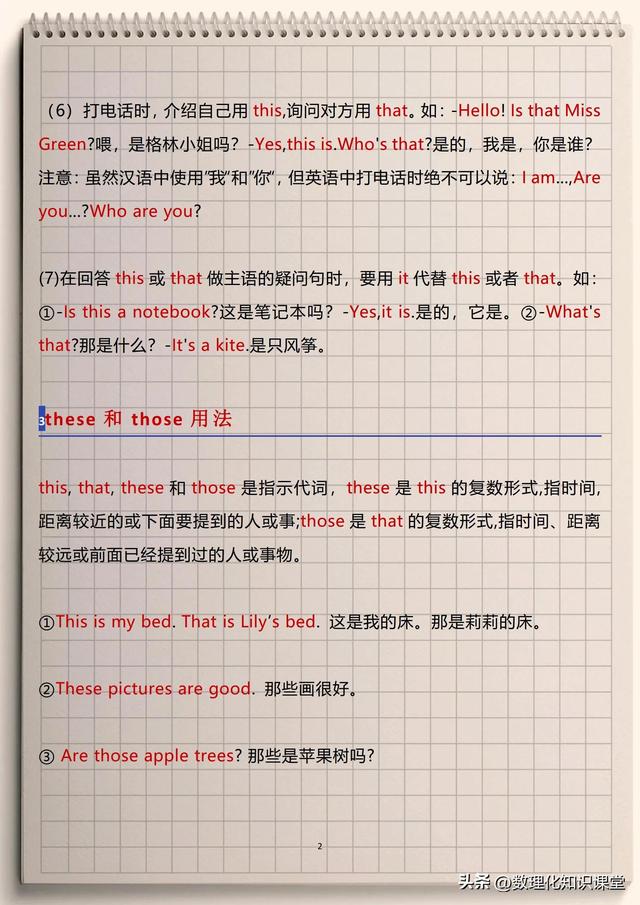 （6）打电话时，介绍自己用 this,询问对方用 that。如：-Hello! Is that Miss
Green?喂，是格林小姐吗？-Yes,this is.Who's that?是的，我是，你是谁？
注意：虽然汉语中使用"我"和"你"，但英语中打电话时绝不可以说：I am...,Are
you...?Who are you?
(7)在回答 this 或 that 做主语的疑问句时，要用 it 代替 this 或者 that。如：
①-Is this a notebook?这是笔记本吗？-Yes,it is.是的，它是。②-What's
that?那是什么？-It's a kite.是只风筝。
3these 和 those 用法
this, that, these 和 those 是指示代词，these 是 this 的复数形式,指时间,
距离较近的或下面要提到的人或事;those 是 that 的复数形式,指时间、距离
较远或前面已经提到过的人或事物。
①This is my bed. That is Lily’s bed. 这是我的床。那是莉莉的床。
②These pictures are good. 那些画很好。
③ Are those apple trees? 那些是苹果树吗?
2
头条 @数理化知识课堂